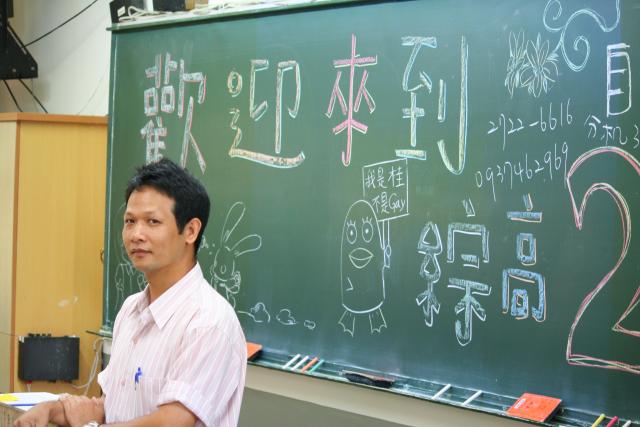 歡迎來到
自
2722-6616
分机
0937462969
我是桂
不是Gay
綜高2